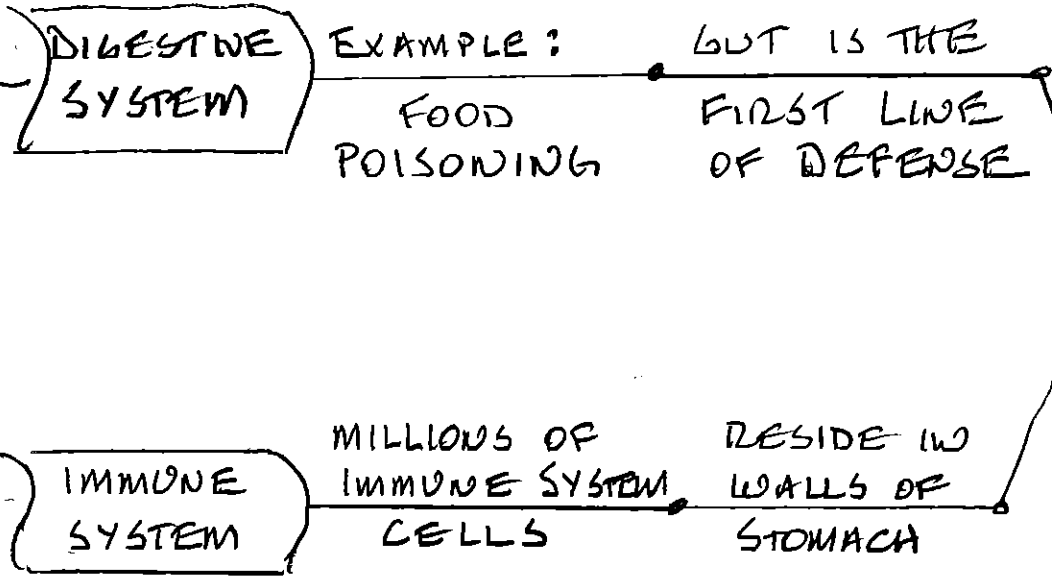 DIGESTIVE
SYSTEM
EXAMPLE:
FOOD
POISONING
GUT IS THE
FIRST LINE
OF DEFENSE
IMMUNE
SYSTEM
MILLIONS OF
IMMUNE SYSTEM
CELLS
RESIDE IN
WALLS OF
STOMACH